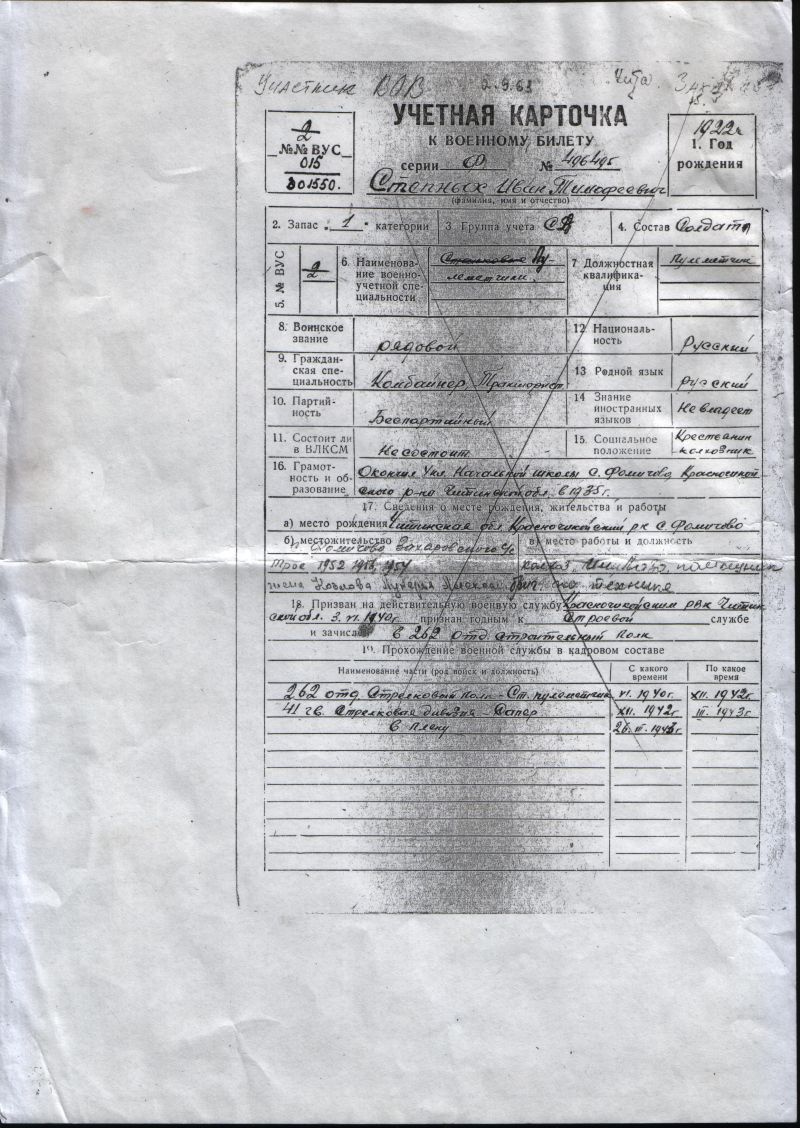 Участник ВОВ 2.9.63 Чита
УЧЕТНАЯ КАРТОЧКА
К ВОЕННОМУ БИЛЕТУ
серии Ф № 496495
2
№№ ВУС
015
301550.
1922г
1. Год
рождения
Степных Иван Тимофеевич
(фамилия, имя и отчество)
2. Запас 1 категории 3. Группа учета СА 4. Состав Солдат
5. № ВУС 2
6. Наименова-
ние военно-
учетной спе-
циальности
Стрелковые Пу-
леметчики
7 Должностная
квалифика-
ция
Пулеметчик
8. Воинское
звание
рядовой
12 Националь-
ность
Русский
9. Граждан-
ская спе-
циальность
Комбайнер, Тракторист
13 Родной язык
русский
10. Партий-
ность
Беспартийный
14 Знание
иностранных
языков
Не владеет
11. Состоит ли
в ВЛКСМ
Не состоит
15. Социальное
положение
Крестьянин
колхозник
16. Грамот-
ность и об-
разование
Окончил 4кл. Начальной школы с. Фомичево, Красночикой-
ского р-на Читинской обл. в 1935г.
17. Сведения о месте рождения, жительства и работы
а) место рождения Читинская обл. Красночикойский рк с. Фомичево
б) местожительство
Фомичево Захаровского с/с
в) место работы и должность
трое 1952 1954
колхоз
жена
18. Призван на действительную военную службу Красночикойским рвк Читин
ской обл. 3.VI.1940г. признан годным к Строевой службе
и зачислен в 262 отд. Строительный полк
19. Прохождение военной службы в кадровом составе
Наименование части (род войск и должность)
С какого
времени
По какое
время
262 отд Стрелковый полк - Ст. пулеметчик VI.1940г. XII.1942г
41 гв. Стрелковая дивизия - Сапер XII.1942г III.1943г
В плену 26.III.1943г